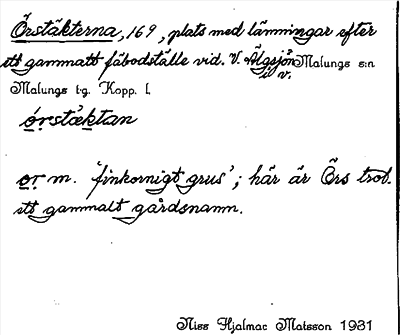 Örstäkterna, 169, plats med lämningar efter
ett gammalt fäbodställe vid. V. Älgsjön Malungs s:n
i v.
Malungs tg. Kopp. l.
ó̱rstæktan
or m. 'finkornigt grus'; här är Örs trol.
ett gammalt gårdsnamn.
Niss Hjalmar Matsson 1931